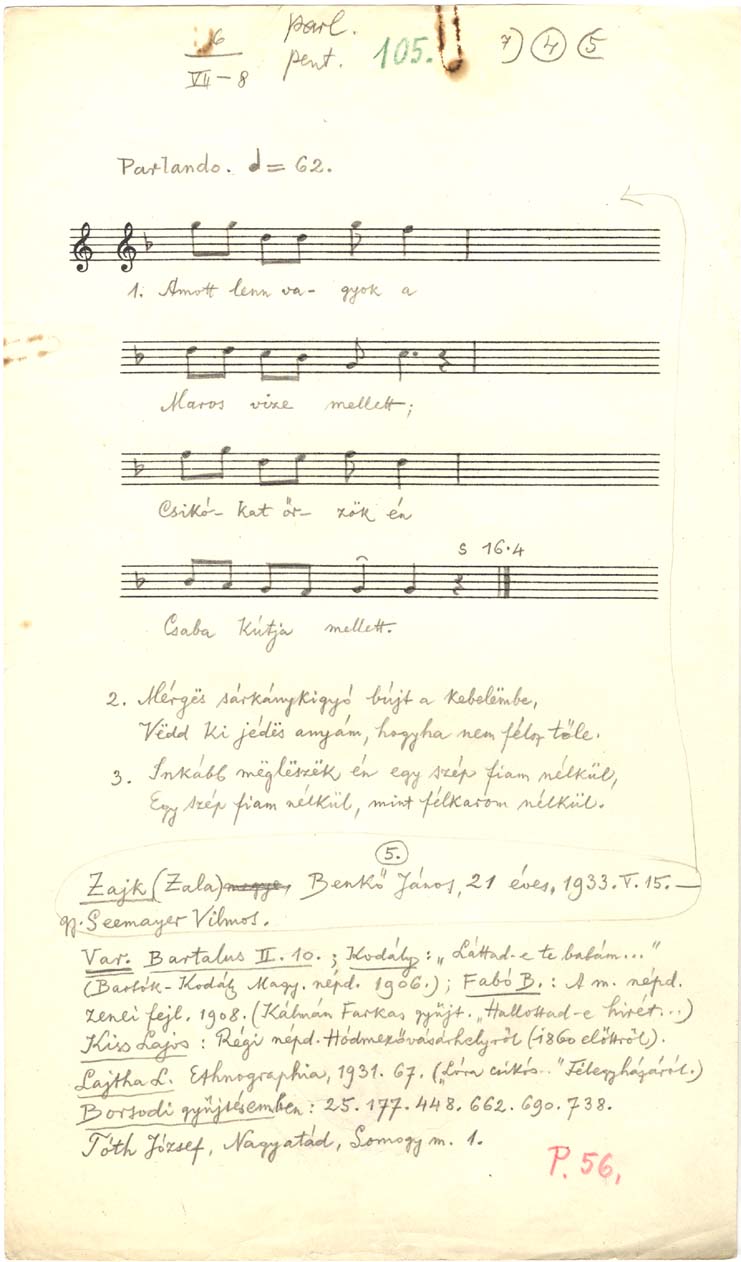 6 parl.
VII-8 pent. 105. 7) 4 5
Parlando. = 62.
1. Amott lenn va- gyok a
Maros vize mellett;
Csikó- kat őr- zök én
s 16.4
Csaba kútja mellett.
2. Mérgës sárkánykigyó bújt a kebelëmbe,
Vëdd ki jédës anyám, hogyha nem félsz tőle.
3. Inkább mëglëszëk én egy szép fiam nélkül,
Egy szép fiam nélkül, mint félkarom nélkül.
5.
Zajk (Zala) megye, Benkő János, 21 éves, 1933. V. 15. —
gy. Seemayer Vilmos.
Var. Bartalus II. 10.; Kodály: „Láttad-e te babám..."
(Bartók-Kodály Magy. népd. 1906.); Fabó B.: A m. népd.
zenei fejl. 1908. (Kálmán Farkas gyüjt. „Hallottad-e hirét...)
Kiss Lajos: Régi népd. Hódmezővásárhelyről (1860 előttről).
Lajtha L. Ethnographia, 1931. 67. („Lóra csikós.." Félegyházáról.)
Borsodi gyűjtésemben: 25. 177. 448. 662. 690. 738.
Tóth József, Nagyatád, Somogy m. 1.
P. 56,